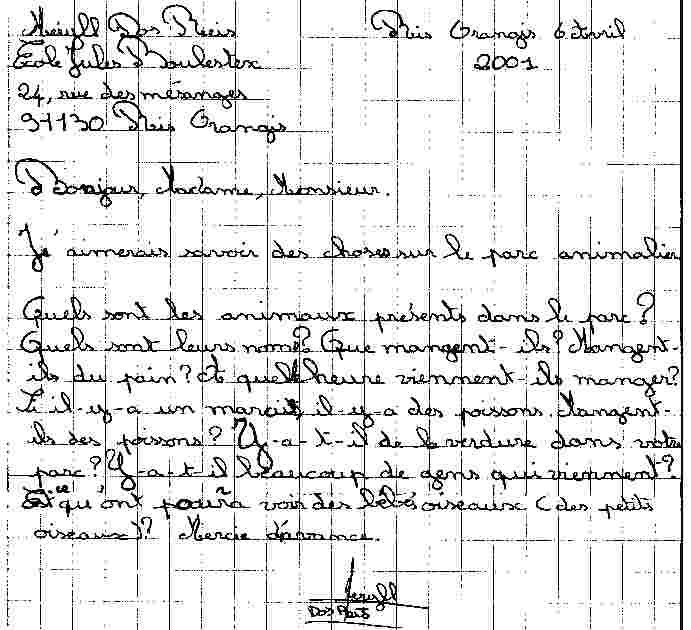 Meryll Dos Reis Ris Orangis 6 Avril
Ecole Jules Boulesteix 2001
24, rue des mésanges
91130 Ris Orangis
Bonjour, Madame, Monsieur.
Je' aimerais savoir des choses sur le parc animalier
Quels sont les animaux présents dans le parc?
Quels sont leurs noms? Que mangent-ils? Mangent-
ils du pain? A quel heure viennent-ils manger?
S'il-y-a un marais, il-y-a des poissons. Mangent-
ils des poissons? Y-a-t-il de la verdure dans votre
parc? Y-a-t-il beaucoup de gens qui viennent?
Est ce qu'ont poura voir des bébés oiseaux (des petits
oiseaux)? Mercie d'avance.
Meryll
Dos Reis